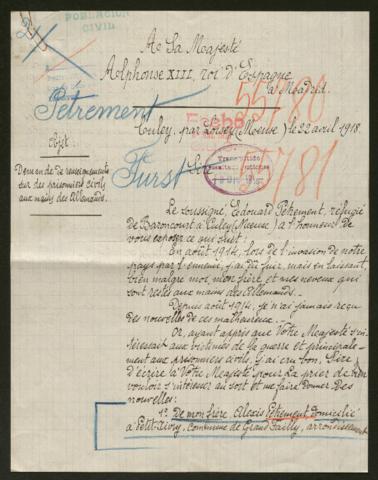 POBLACION
CIVIL
A Sa Majesté
Alphonse XIII, roi d'Espagne
à Madrid.
55780
Pétrement
Culey, par Loisey (Meuse) le 22 avril 1918.
Objet :
Demande de renseignements
sur des prisonniers civils
aux mains des Allemands.
Furst
Sire
55781
Le soussigné, Edouard Pétrement, réfugié
de Baroncourt à Culey (Meuse) a l'honneur de
vous exposer ce qui suit :
En août 1914, lors de l'invasion de notre
pays par l'ennemi, j'ai dû fuir, mais en laissant,
bien malgré moi, mon frère et mes neveux qui
sont restés aux mains des Allemands.
Depuis août 1914, je n'ai jamais reçu
des nouvelles de ces malheureux.
Or, ayant appris que Votre Majesté s'in-
téressait aux victimes de la guerre et principale-
ment aux prisonniers civils, j'ai cru bon, Sire,
d'écrire à Votre Majesté pour la prier de bien
vouloir s'intéresser au sort et me faire donner des
nouvelles :
1° De mon frère Alexis Pétrement domicilié
à Petit-Xivry, commune de Grand-Failly, arrondissement